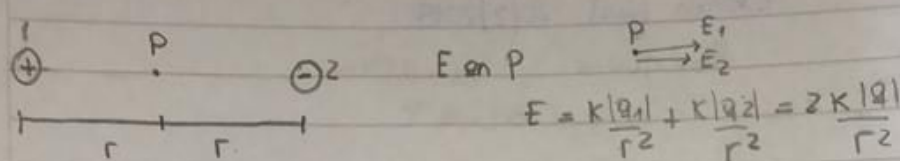 1
P
+
- 2
r r
E en P
P E₁
E₂
E = K|q₁|/r² + K|q₂|/r² = 2K|Q|/r²